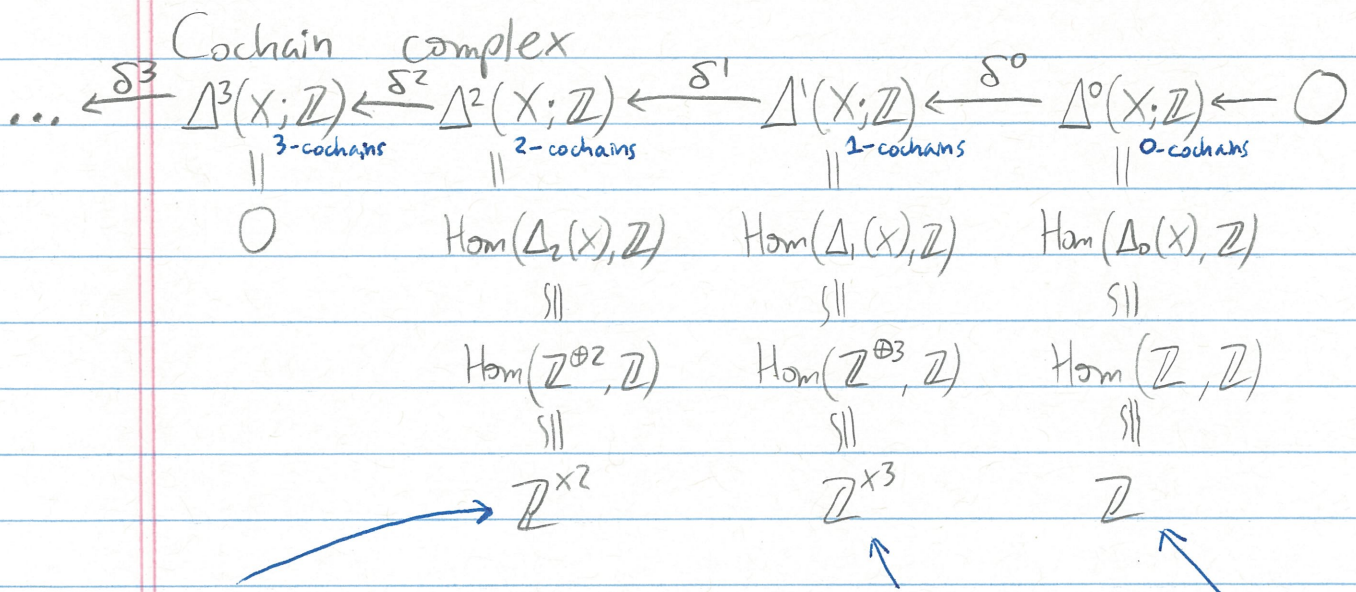 Cochain complex
... ←δ³ Δ³(X;ℤ) ←δ² Δ²(X;ℤ) ←δ¹ Δ¹(X;ℤ) ←δ⁰ Δ⁰(X;ℤ) ← 0
3-cochains 2-cochains 1-cochains 0-cochains
|| || || ||
0 Hom(Δ₂(X),ℤ) Hom(Δ₁(X),ℤ) Hom(Δ₀(X),ℤ)
≅ ≅ ≅
Hom(ℤ^⊕2,ℤ) Hom(ℤ^⊕3,ℤ) Hom(ℤ,ℤ)
≅ ≅ ≅
ℤ^×2 ℤ^×3 ℤ